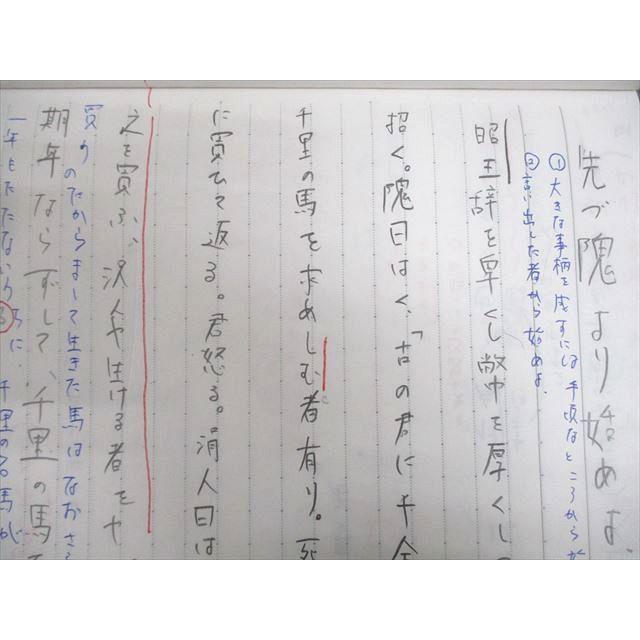 先づ隗より始めよ、
①大きな事柄を成すには手頃なところから
②言い出した者から始めよ、
昭王辞を卑くし幣を厚くし
招く。隗曰はく、「古の君に千金
千里の馬を求めしむ者有り。死
に買ひて返る。君怒る。涓人曰は
之を買ふ、況んや生ける者をや
買うのだからまして生きた馬はなおさら
期年ならずして、千里の馬
一年もたたないうちに、千里の馬が